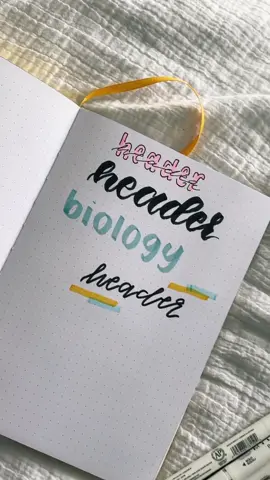 header
header
biology
header